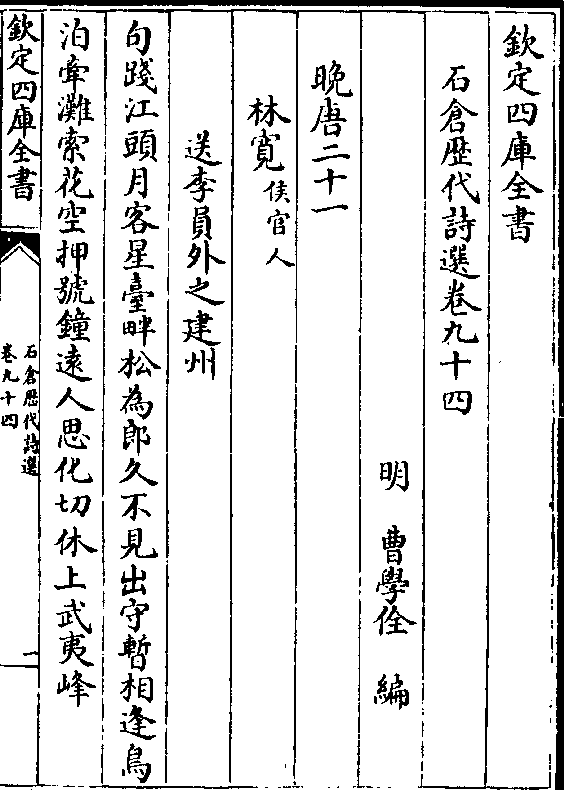 欽定四庫全書
石倉歷代詩選卷九十四
明 曹學佺 編
晚唐二十一
林寛侯官人
送李員外之建州
句踐江頭月客星臺畔松為郎久不見出守暫相逢鳥
泊牽灘索花空押號鐘遠人思化切休上武夷峰
欽定四庫全書
石倉歷代詩選
卷九十四
一